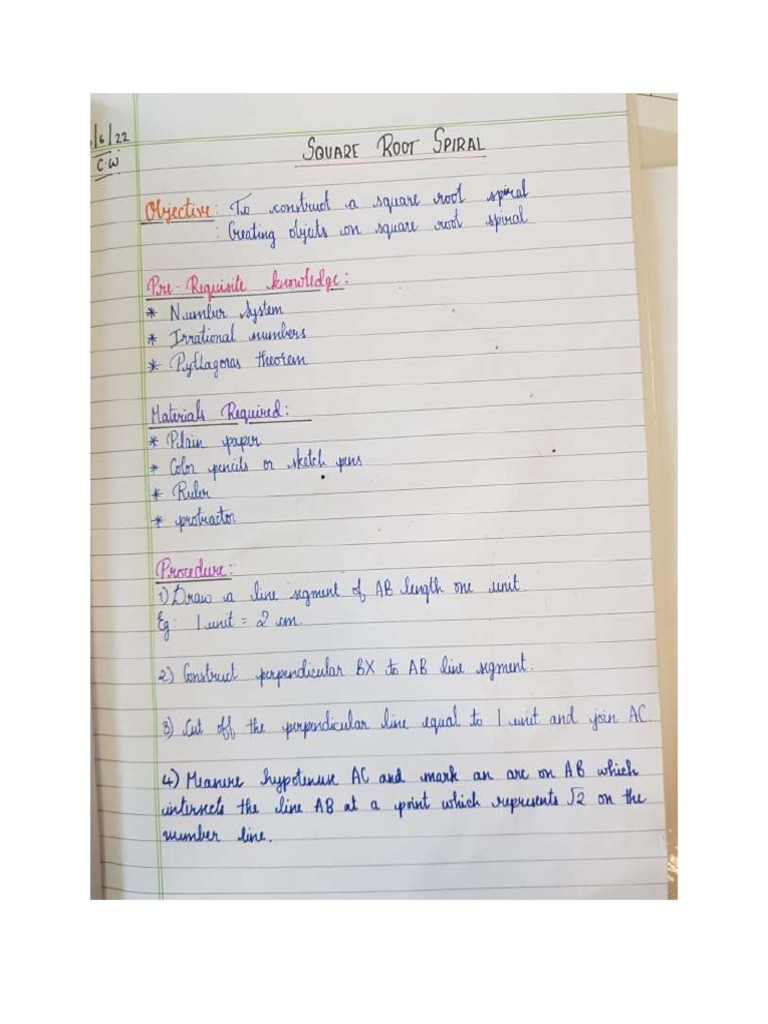 /6/22
C.W
SQUARE ROOT SPIRAL
Objective: To construct a square root spiral
: Creating objects on square root spiral
Pre-Requisite knowledge:
* Number system
* Irrational numbers
* Pythagoras theorem
Materials Required:
* Plain paper
* Color pencils or sketch pens
* Ruler
* protractor
Procedure:
1) Draw a line segment of AB length one unit.
Eg: 1 unit = 2 cm.
2) Construct perpendicular BX to AB line segment.
3) Cut off the perpendicular line equal to 1 unit and join AC.
4) Measure hypotenuse AC and mark an arc on AB which
intersects the line AB at a point which represents √2 on the
number line.